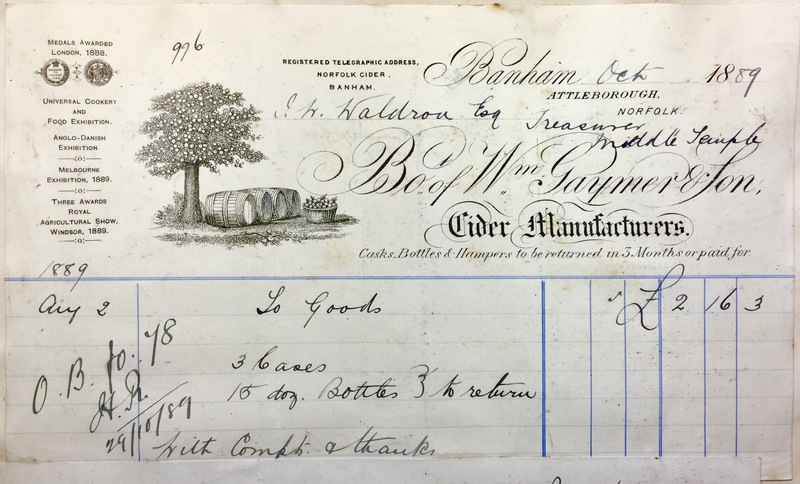 MEDALS AWARDED
LONDON, 1888.
UNIVERSAL COOKERY
AND
FOOD EXHIBITION.
ANGLO-DANISH
EXHIBITION
MELBOURNE
EXHIBITION, 1889.
THREE AWARDS
ROYAL
AGRICULTURAL SHOW,
WINDSOR, 1889.
996
REGISTERED TELEGRAPHIC ADDRESS,
NORFOLK CIDER,
BANHAM.
Banham Oct 1889
ATTLEBOROUGH,
NORFOLK.
J. W. Waldron Esq Treasurer
Middle Temple
Bo.t of Wm Gaymer & Son,
Cider Manufacturers.
Casks, Bottles & Hampers to be returned in 3 Months or paid for
1889
Aug 2 To Goods £ 2 16 3
O. B. fo. 78
3 Cases
15 doz. Bottles } to return
29/10/89
With Compts & thanks